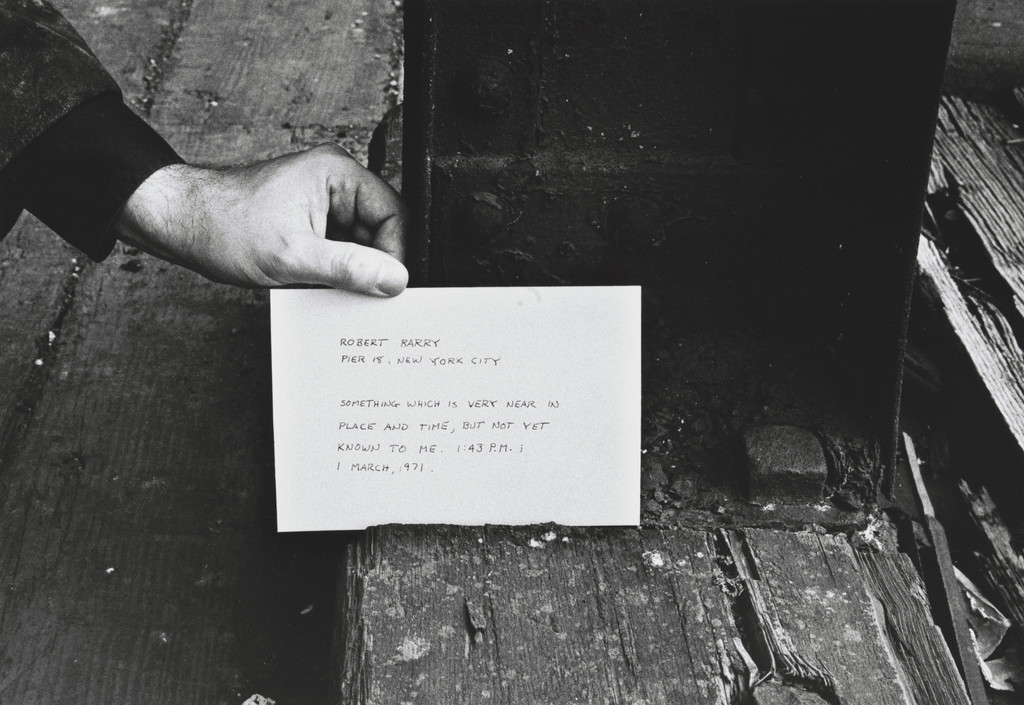 ROBERT BARRY
PIER 18, NEW YORK CITY
SOMETHING WHICH IS VERY NEAR IN
PLACE AND TIME, BUT NOT YET
KNOWN TO ME. 1:43 P.M. ;
1 MARCH, 1971.